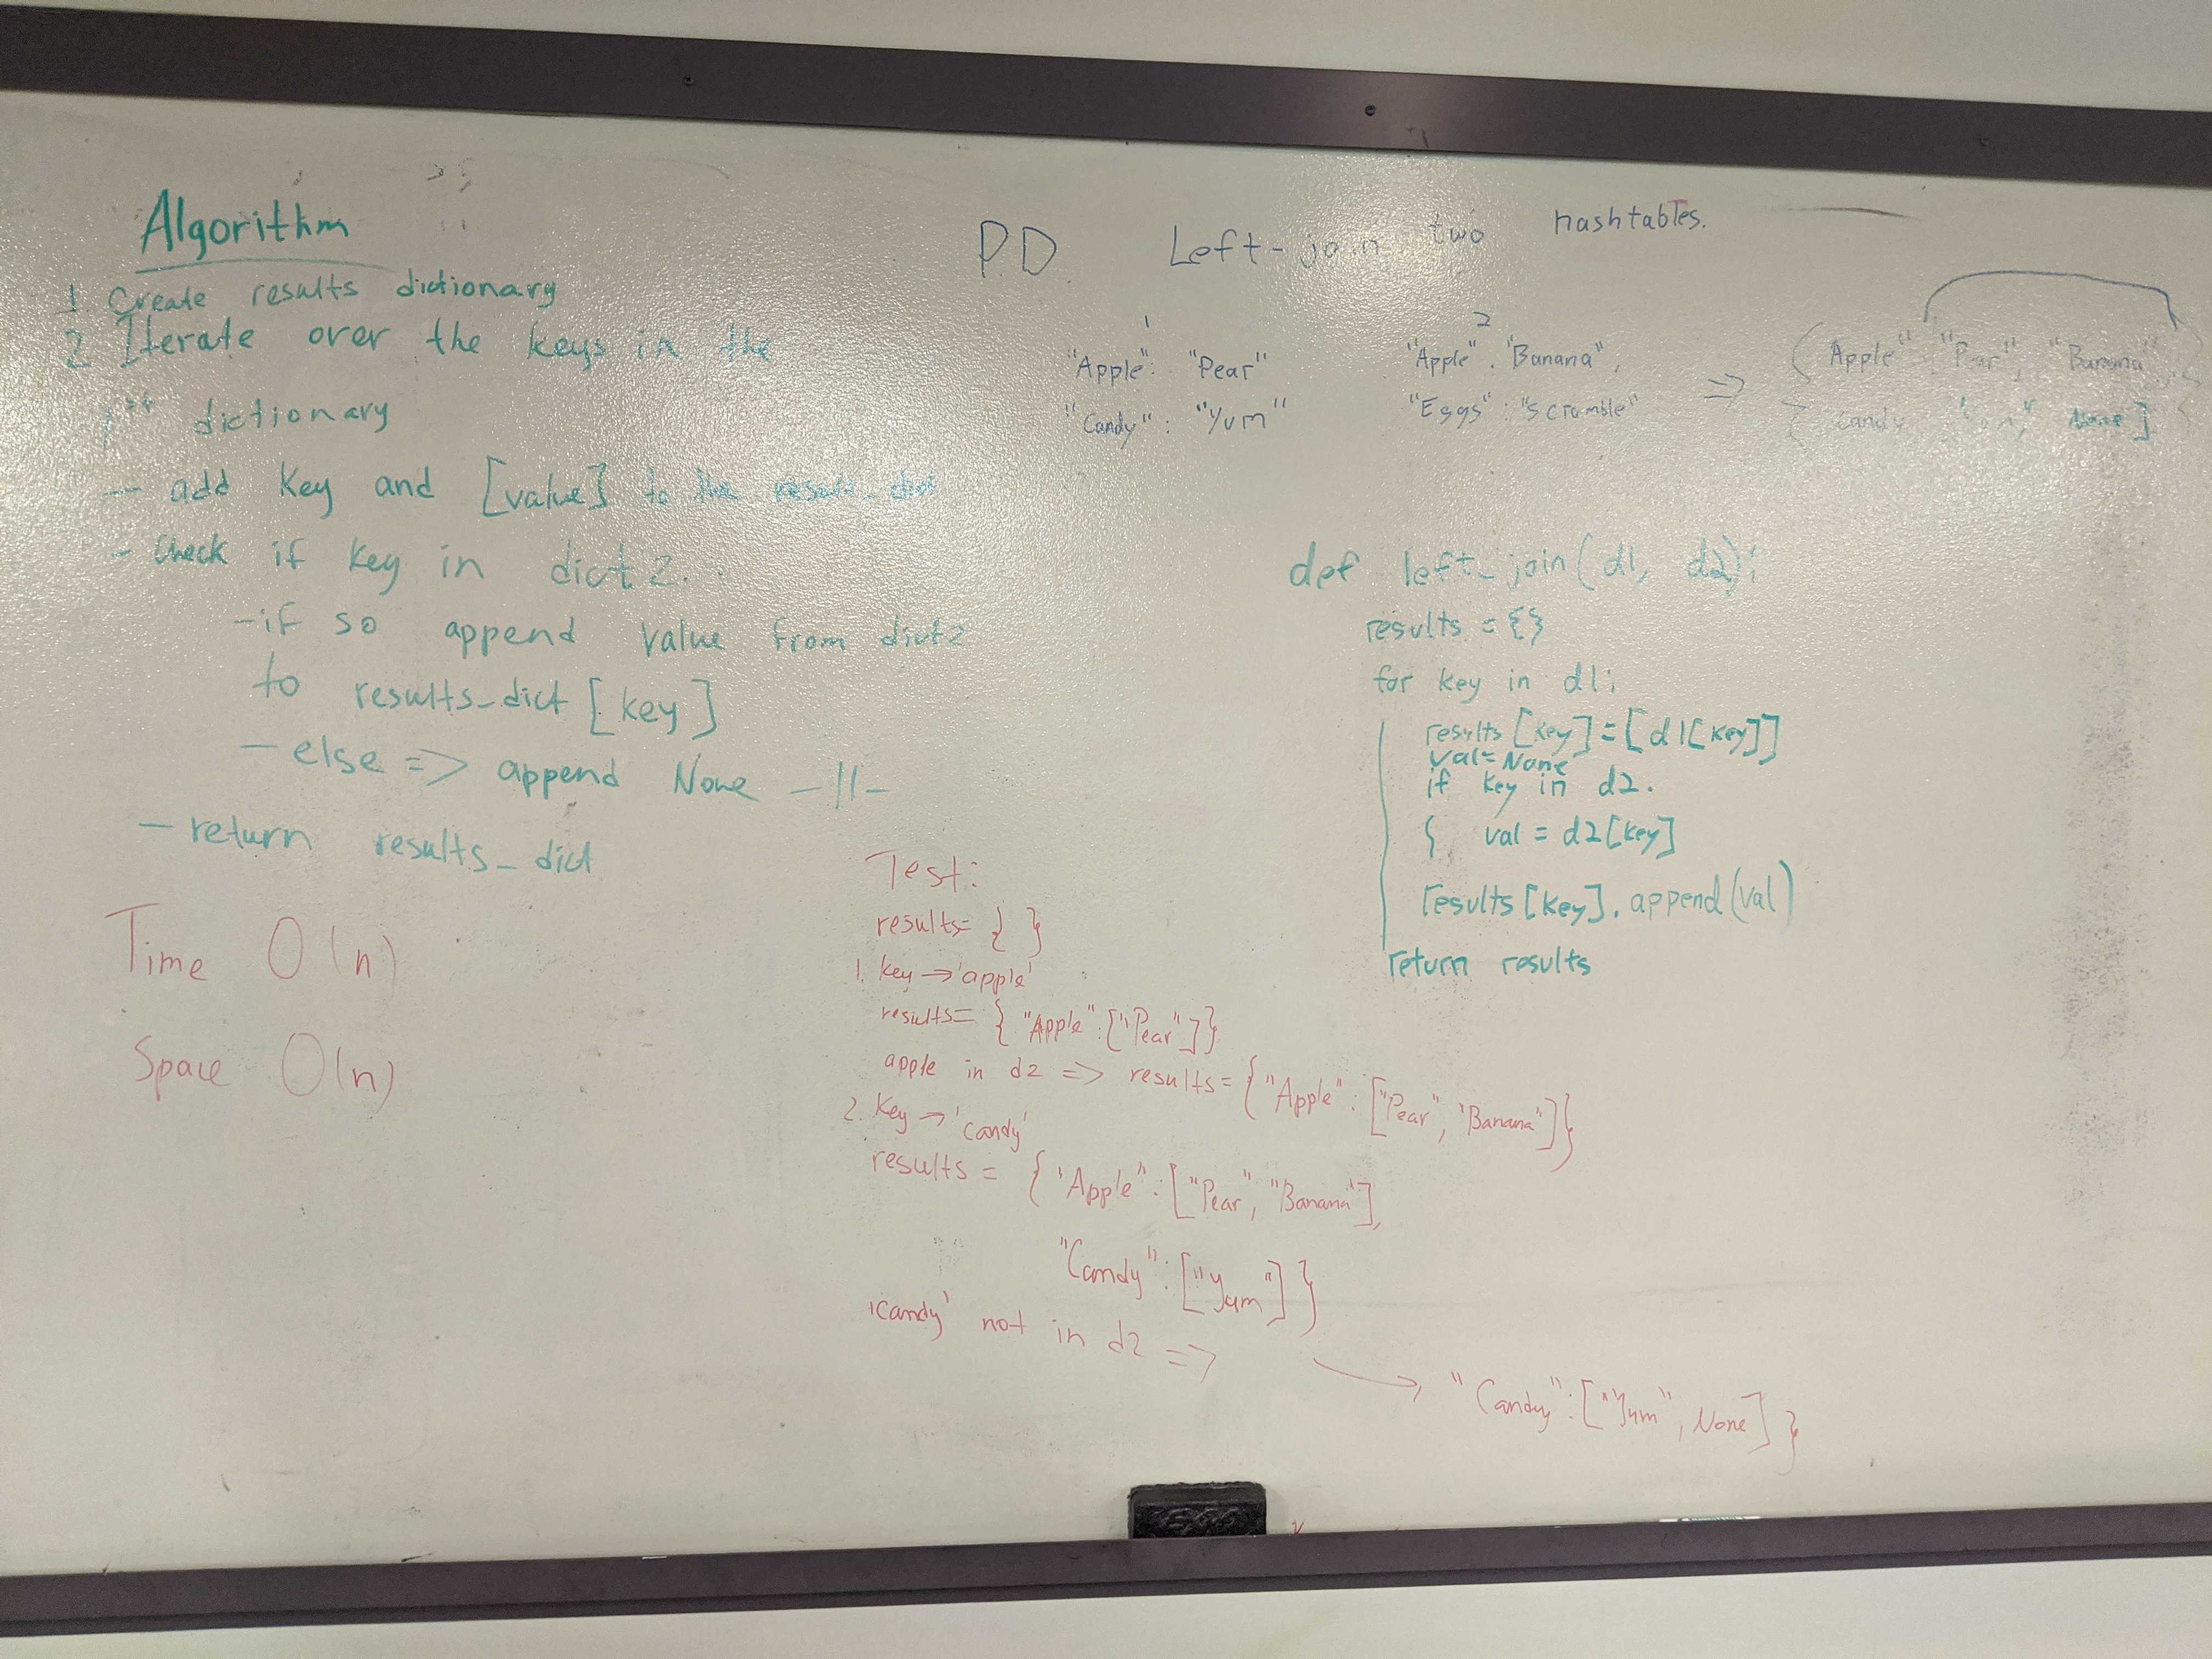 Algorithm
1. Create results dictionary
2 Iterate over the keys in the
1st dictionary
- add key and [value] to the result_dict
- Check if key in dict2..
- if so append value from dict2
to results_dict [key]
- else => append None -||-
- return results_dict
Time O(n)
Space O(n)
P.D Left-join two hashtables.
1
"Apple": "Pear"
"Candy": "Yum"
2
"Apple". "Banana",
"Eggs": "scramble"
=>
Apple" "Pear", "Banana"
candy None]
def left_join(d1, d2):
results = {}
for key in d1:
results [key] = [d1[key]]
val=None
if key in d2.
{ val = d2[key]
results [key]. append(val)
return results
Test:
results= { }
1. key -> 'apple'
results= { "Apple": ["Pear"]}
apple in d2 => results= {"Apple": ["Pear", 'Banana"]}
2. Key -> 'candy'
results = { 'Apple": ["Pear", "Banana"],
"Candy": ["Yum"] }
'candy' not in d2 =>
-> "Candy": ["Yum", None] }